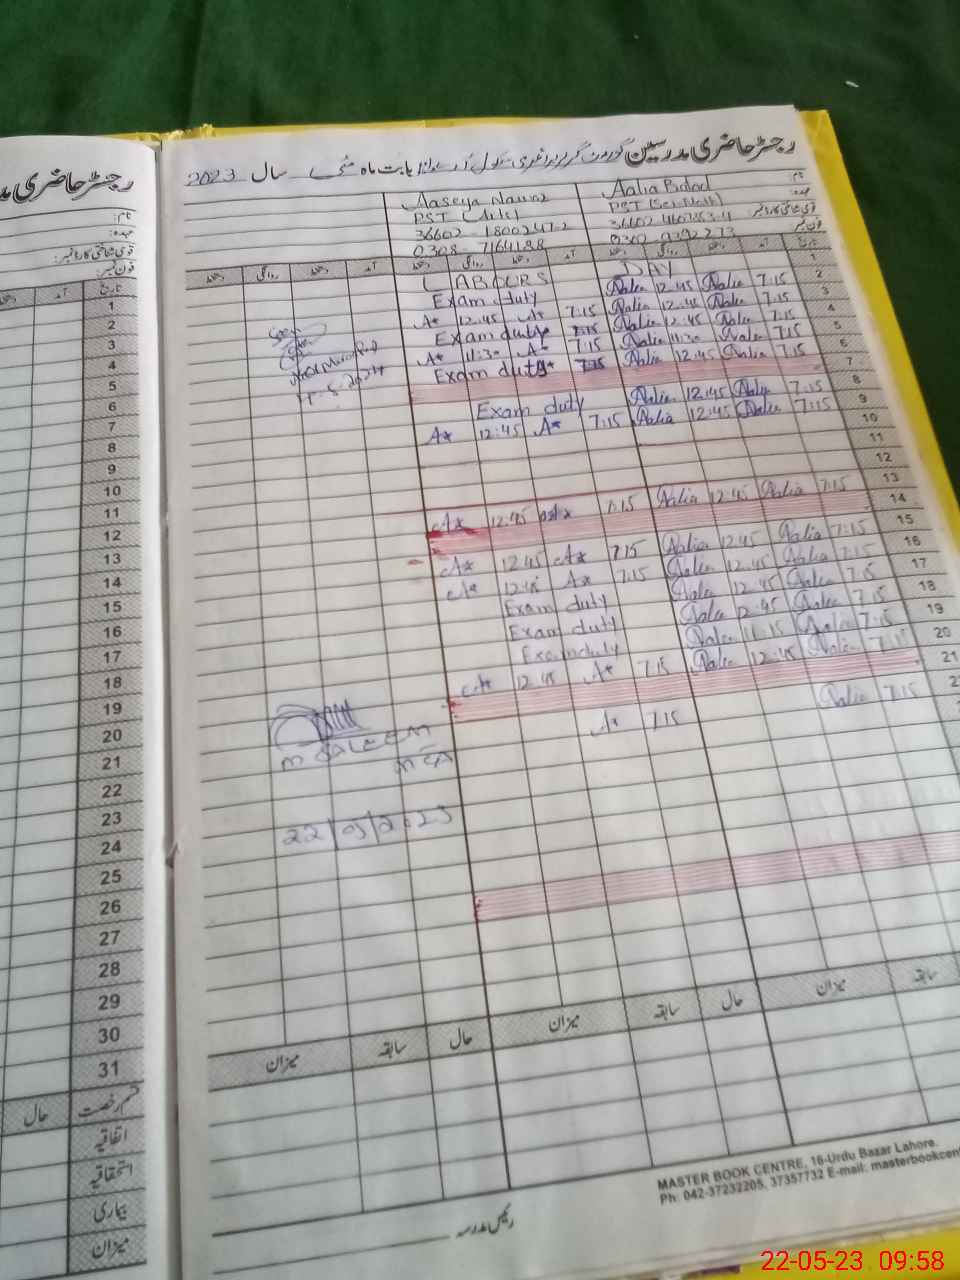 رجسٹر حاضری مدرسین گورنمنٹ گرلز پرائمری سکول بابت ماہ مئی سال 2023
Aaseya Nawaz Aalia Batool نام:
PST (Arts) PST (Sci-Math) عہدہ:
36602-1800247-2 قومی شناختی کارڈ نمبر:
0308-7164188 0302-9392273 فون نمبر:
دستخط روانگی دستخط آمد دستخط روانگی دستخط آمد دستخط روانگی دستخط آمد تاریخ
LABOURS DAY 1
Exam duty Aalia 12:45 Aalia 7:15 2
A* 12:45 A* 7:15 Aalia 12:45 Aalia 7:15 3
Exam duty 7:15 Aalia 12:45 Aalia 7:15 4
A* 11:30 A* 7:15 Aalia 11:30 Aalia 7:15 5
Exam duty 7:15 Aalia 12:45 Aalia 7:15 6
7
Exam duty Aalia 12:45 Aalia 7:15 8
A* 12:45 A* 7:15 Aalia 12:45 Aalia 7:15 9
10
11
12
A* 12:45 7:15 Aalia 12:45 Aalia 7:15 13
14
A* 12:45 A* 7:15 Aalia 12:45 Aalia 7:15 15
A* 12:45 A* 7:15 Aalia 12:45 Aalia 7:15 16
Exam duty Aalia 12:45 Aalia 7:15 17
Exam duty Aalia 12:45 Aalia 7:15 18
Exam duty Aalia 11:15 Aalia 7:15 19
A* 12:45 A* 7:15 Aalia 12:45 Aalia 7:15 20
21
A* 7:15 Aalia 7:15
M SALEEM
MEA
22/05/2023
میزان سابقہ حال میزان سابقہ حال میزان سابقہ
رئیس مدرسہ
MASTER BOOK CENTRE, 16-Urdu Bazar Lahore.
Ph: 042-37232205, 37357732 E-mail: masterbookcen
رجسٹر حاضری مد
نام:
عہدہ:
قومی شناختی کارڈ نمبر:
فون نمبر:
دستخط آمد تاریخ
1
2
3
4
5
6
7
8
9
10
11
12
13
14
15
16
17
18
19
20
21
22
23
24
25
26
27
28
29
30
31
حال قسم رخصت
اتفاقیہ
استحقاقیہ
بیماری
میزان
22-05-23 09:58